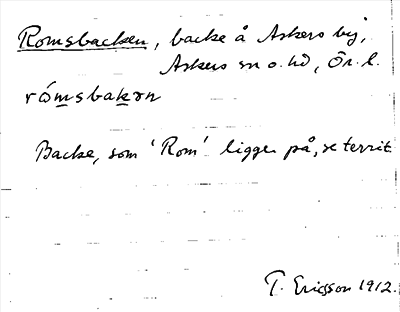 Romsbacken, backe å Askers by,
Askers sn o. hd, Ör. l.
rómsbakən
Backe, som 'Rom' ligger på, se territ
T. Ericsson 1912.